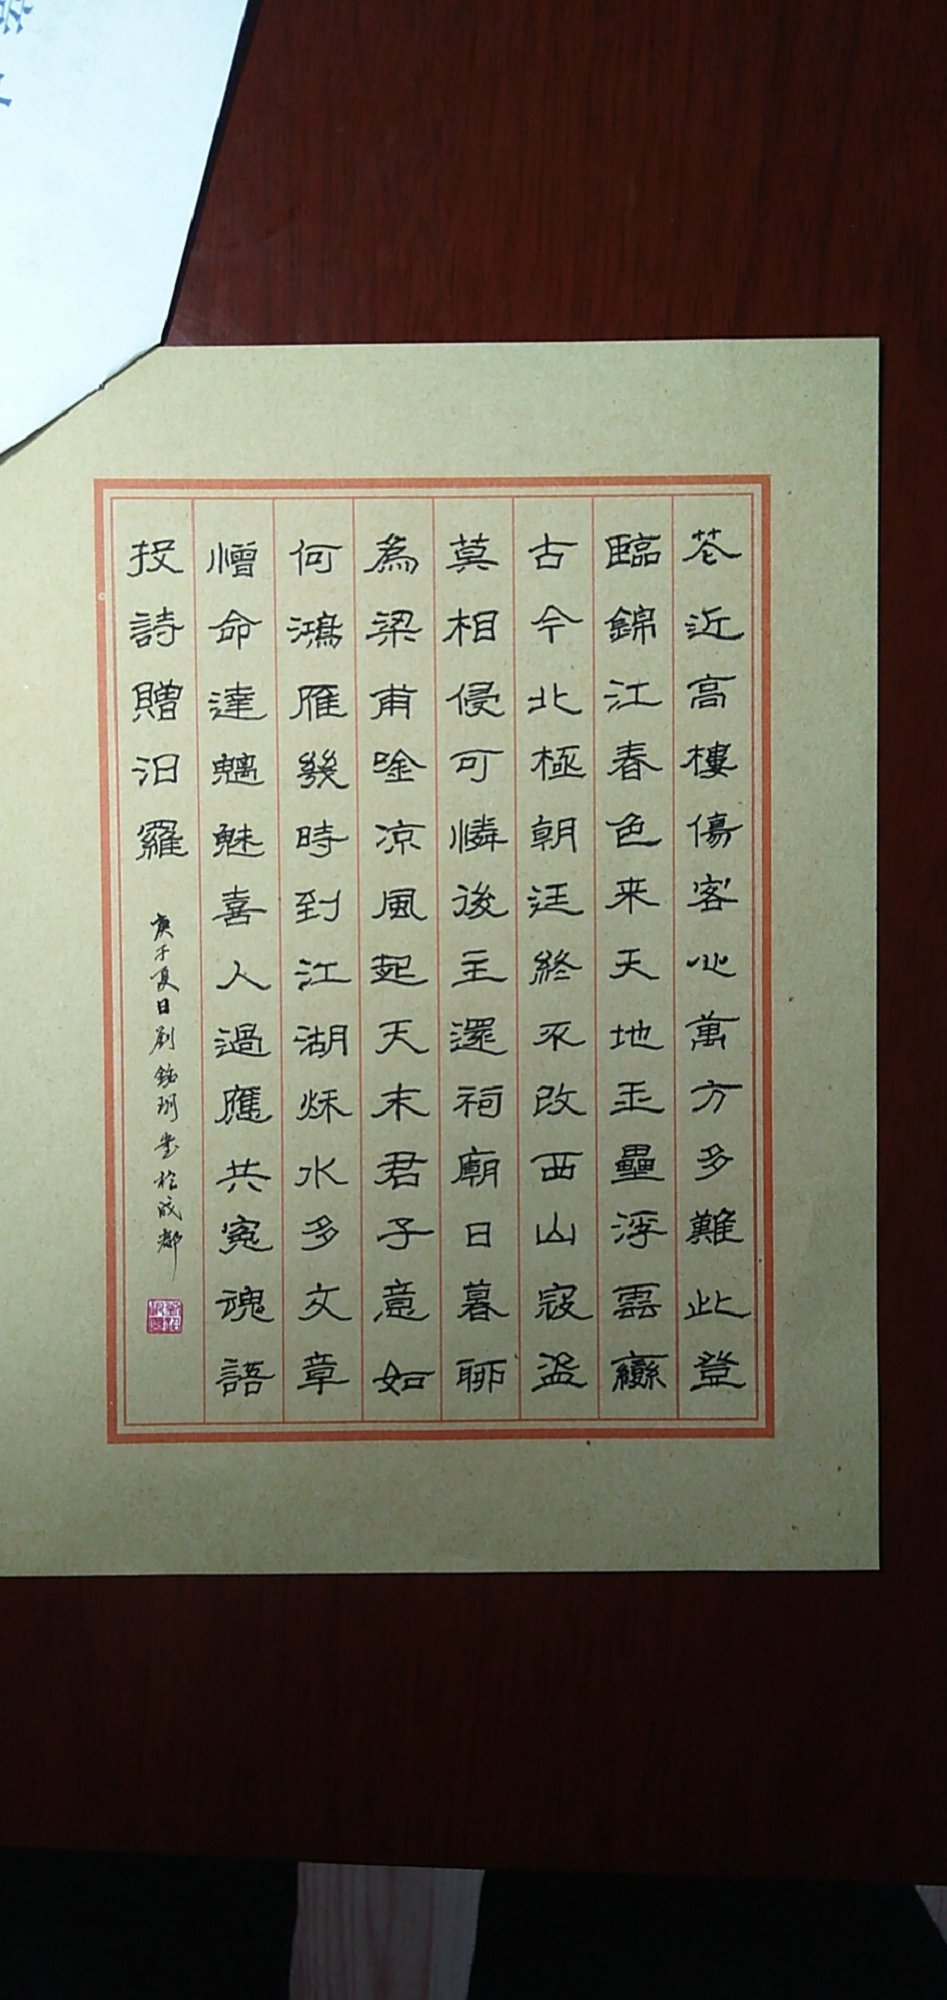 芲近高樓傷客心萬方多難此登
臨錦江春色来天地玉壘浮雲變
古今北極朝廷終不改西山寇盗
莫相侵可憐後主還祠廟日暮聊
為梁甫唫凉風起天末君子意如
何鴻雁幾時到江湖秌水多文章
憎命達魑魅喜人過應共寃魂語
投詩贈汨羅
庚子夏日劉銘珂書於成都